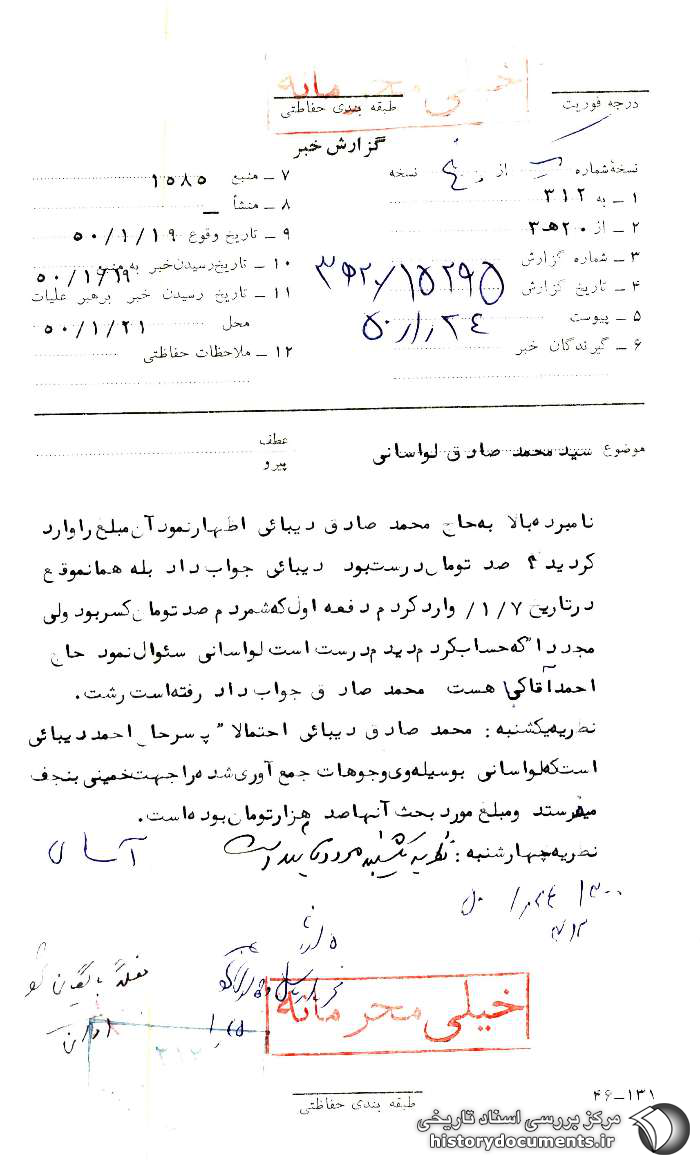 خیلی محرمانه
درجه فوریت
طبقه بندی حفاظتی
گزارش خبر
نسخهٔ شماره از نسخه
۱ ـ به ۳۱۲
۲ ـ از ۲۰ هـ ۳
۳ ـ شماره گزارش ۱۵۲۹۵/۲۰هـ۳
۴ ـ تاریخ گزارش ۵۰/۱/۲۴
۵ ـ پیوست
۶ ـ گیرندگان خبر
۷ ـ منبع ۱۵۸۵
۸ ـ منشأ ـ
۹ ـ تاریخ وقوع ۵۰/۱/۱۹
۱۰ ـ تاریخ رسیدن خبر به منبع ۵۰/۱/۱۹
۱۱ ـ تاریخ رسیدن خبر برهبر عملیات
محل ۵۰/۱/۲۱
۱۲ ـ ملاحظات حفاظتی
موضوع سید محمد صادق لواسانی
عطف
پیرو
نامبرده بالا به حاج محمد صادق دیبائی اظهار نمود آن مبلغ را وارد
کردید؟ صد تومان درست بود دیبائی جواب داد بله همانموقع
در تاریخ ۱/۷/ وارد کردم دفعه اول که شمردم صد تومان کسر بود ولی
مجددا" که حساب کردم دیدم درست است لواسانی سئوال نمود حاج
احمدآقا کی هست محمد صادق جواب داد رفته است رشت.
نظریه یکشنبه: محمد صادق دیبائی احتمالا" پسر حاج احمد دیبائی
است که لواسانی بوسیله وی وجوهات جمع آوری شده را جهت خمینی بنجف
میفرستد و مبلغ مورد بحث آنها صد هزار تومان بوده است.
نظریه چهارشنبه: نظریه یکشنبه مورد تایید است
۳۱۲
خیلی محرمانه
۳۱۲
طبقه بندی حفاظتی
۴۶-۱۳۱
مرکز بررسی اسناد تاریخی
historydocuments.ir